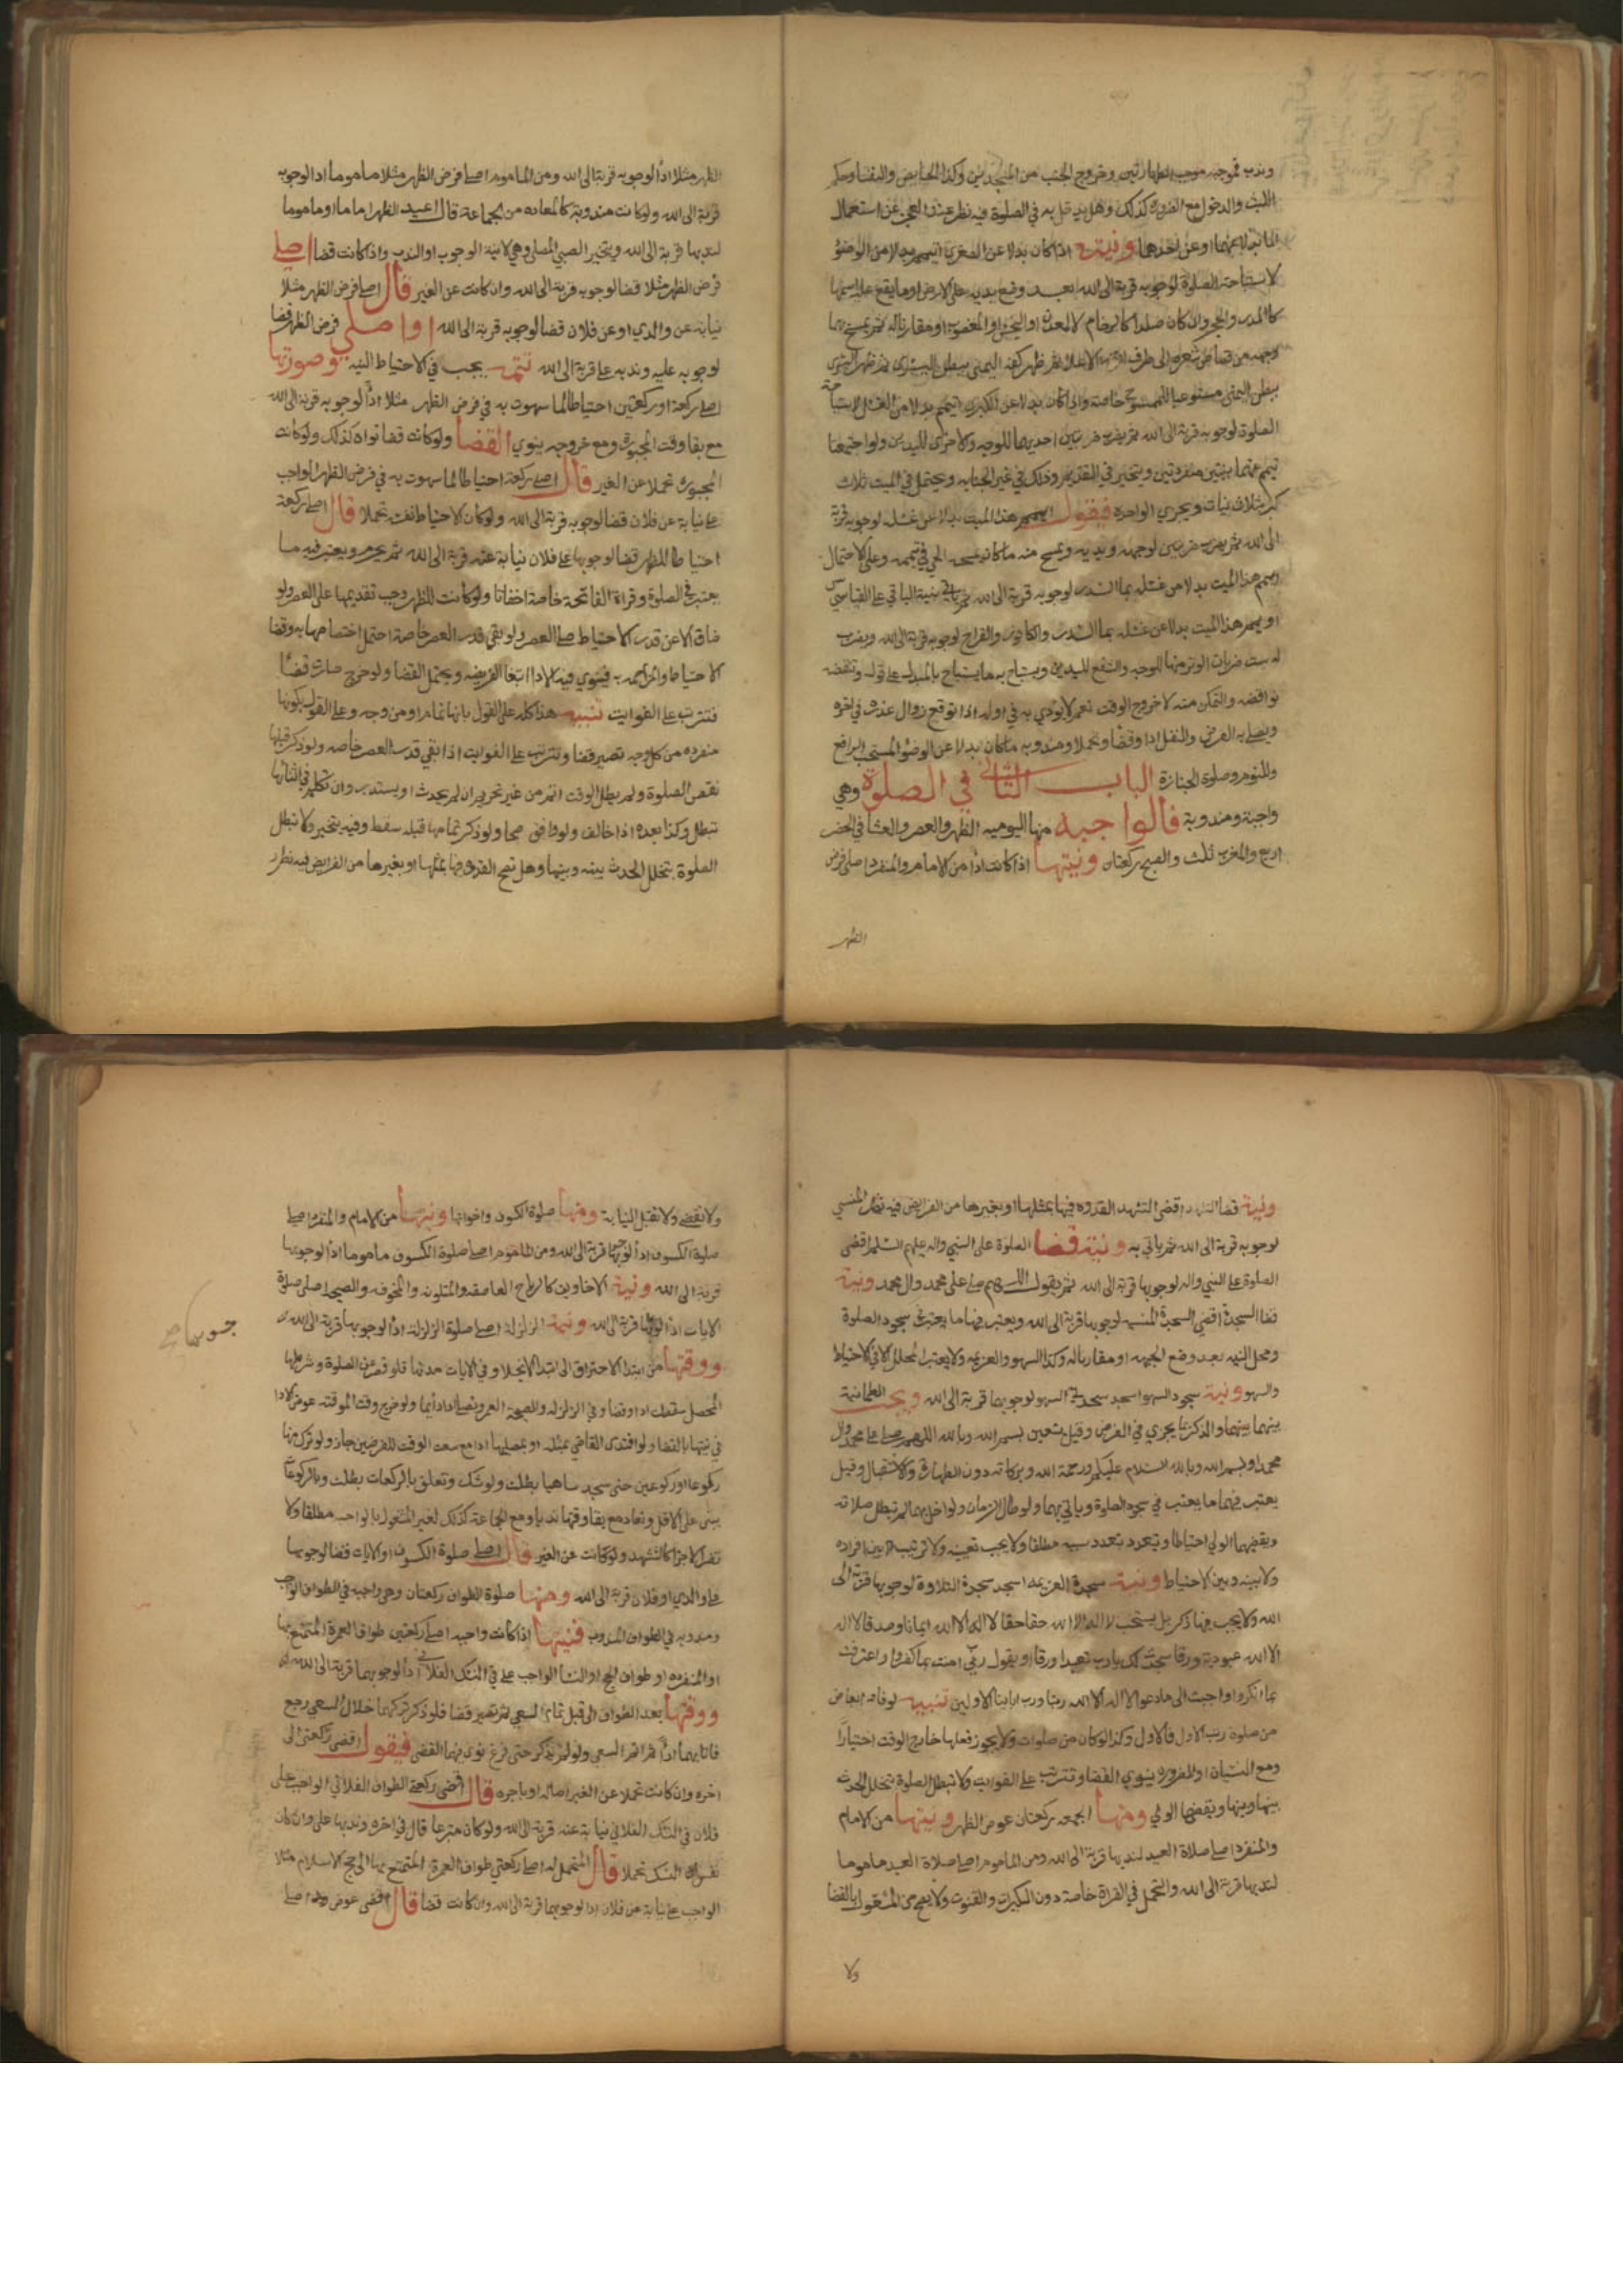 وندبه بموجبه موجب الطهارتين وخروج الجنب من المسجدين وكذا الحايض والنفساء وحكم
اللبث والدخول مع الضرورة كذلك وهل به في الصلوة فيه نظر عند العجز عن استعمال
الماء بدلا عنهما او عن احدهما ونيته اذا كان بدلا عن الصغرى اتيمم بدلا من الوضوء
لاستباحة الصلوة لوجوبه قربة الى الله بعد وضع يديه على الارض او ما يقع عليه اسمها
كالمدر والحجر وان كان صلدا كالرخام لا المعدن او النجس او المغصوب او مقارنا له ثم يمسح بهما
وجهه من قصاص شعره الى طرف الانف الاعلى ثم ظهر كفه اليمنى ببطن اليسرى ثم ظهر اليسرى
ببطن اليمنى مستوعبا للممسوح خاصة واذا كان بدلا عن الكبرى اتيمم بدلا من الغسل لاستباحة
الصلوة لوجوبه قربة الى الله ثم يضرب ضربتين احديهما للوجه والاخرى لليدين ولو اجتمعتا
تيمم عنهما بنيتين منفردتين ويتخير في التقديم وذلك في غير الجنابه ويحتمل في الميت ثلاث
بثلاث نيات ويجزي الواحدة فيقول ايمم هذا الميت بدلا عن غسله لوجوبه قربة
الى الله ثم يضرب ضربتين لوجهه ويديه ويمسح منه ما كان يمسحه الحي في تيممه وعلى الاحتمال
ايمم هذا الميت بدلا من غسله بماء السدر لوجوبه قربة الى الله بنية الباقي على القياس
او ييمم هذا الميت بدلا عن غسله بماء السدر والكافور والقراح لوجوبه قربة الى الله ويضرب
له ست ضربات الوتر منها للوجه والشفع لليدين ويستباح به ما يستباح بالمبدل على قوله وتنقضه
نواقضه والتمكن منه لا خروج الوقت نعم لا يودي به في اوله اذا توقع زوال عذره في اخره
ويصلى به الفرض والنفل ادا وقضا وتحملا ومندوبه ما كان بدلا عن الوضوء المستحب الرافع
وللنوم وصلوة الجنازة الباب الثاني في الصلوة وهي
واجبة ومندوبة فالواجبه منها اليوميه الظهر والعصر والعشا في الحضر
اربع والمغرب ثلث والصبح ركعتان ونيتها اذا كانت ادا من الامام والمنفرد اصلي فرض
الظهر
الظهر مثلا ادا لوجوبه قربة الى الله ومن الماموم اصلي فرض الظهر مثلا ماموما ادا لوجوبه
قربة الى الله ولو كانت مندوبة كالمعاده من الجماعة قال اعيد الظهر اماما او ماموما
لندبها قربة الى الله ويتخير الصبي المصلي وهي لا نية الوجوب او الندب واذا كانت قضا اصلي
فرض الظهر مثلا قضا لوجوبه قربة الى الله وان كانت عن الغير قال اصلي فرض الظهر مثلا
نيابة عن والدي او عن فلان قضا لوجوبه قربة الى الله او اصلي فرض الظهر قضا
لوجوبه عليه وندبه علي قربة الى الله تتمه يجب في الاحتياط النيه وصورتها
اصلي ركعة او ركعتين احتياطا لما سهوت به في فرض الظهر مثلا ادا لوجوبه قربة الى الله
مع بقا وقت المجبورة ومع خروجه ينوي القضا ولو كانت قضا نواه كذلك ولو كانت
المجبورة تحملا عن الغير قال اصلي ركعة احتياطا لما سهوت به في فرض الظهر الواجب
علي نيابة عن فلان قضا لوجوبه قربة الى الله ولو كان الاحتياط نفسه تحملا قال اصلي ركعة
احتياطا للظهر قضا لوجوبها على فلان نيابة عنه قربة الى الله ثم يحرم ويعتبر فيه ما
يعتبر في الصلوة وقراة الفاتحة خاصة اخفاتا ولو كانت للظهر وجب تقديمها على العصر ولو
ضاق الا عن قدر الاحتياط صلى العصر ولو بقي قدر العصر خاصة احتمل اختصاصها به وقضا
الاحتياط والمزاحمه به فينوي فيه الاداء اتبعا الفريضه ويحتمل القضا ولو خرج صارت قضا
فتترتب على الفوايت تنبيه هذا كله على القول بانها تمام او من وجه وعلى القول بكونها
منفرده من كل وجه تصير قضا وتترتب على الفوايت اذا بقي قدر العصر خاصه ولو ذكر قبلها
نقص الصلوة ولم يطل الوقت اتم من غير تحريم ان لم يحدث او يستدبر وان تكلم في اثنائها
تبطل وكذا بعده اذا خالف ولو وافق صحا ولو ذكر تمامها قبله سقط وفيه يتخير ولا تبطل
الصلوة بتخلل الحدث بينه وبينها وهل تصح القدوة فيها بمثلها او بغيرها من الفرايض فيه نظر
ونية قضا التشهد اقضي التشهد القدوه فيها بمثلها او بغيرها من الفرايض فيه نظر المنسي
لوجوبه قربة الى الله ثم ياتي به ونية قضا الصلوة على النبي واله عليهم السلم اقضي
الصلوة على النبي واله لوجوبها قربة الى الله ثم يقول اللهم صل على محمد وال محمد ونية
قضا السجدة اقضي السجدة المنسيه لوجوبها قربة الى الله ويعتبر فيها ما يعتبر في سجود الصلوة
ومحل النيه بعد وضع الجبهه او مقارنا له وكذا السهو والعزيمه ولا يعتبر المحلل الا في الاحتياط
والسهو ونية سجود السهو اسجد سجدتي السهو لوجوبهما قربة الى الله ويجب الطمانينة
بينهما وبينهما والذكر بما يجزي في الفرض وقيل يتعين بسم الله وبالله اللهم صل على محمد وال
محمد او بسم الله وبالله السلام عليكم ورحمة الله وبركاته دون الطهارة والاستقبال وقيل
يعتبر فيهما ما يعتبر في سجود الصلوة وياتي بهما ولو طال الزمان ولو اخل بهما لم تبطل صلاته
ويقضيهما الولي احتياطا ويتعدد بتعدد سببه مطلقا ولا يجب تعيينه ولا ترتيب بين افراده
ولا بينه وبين الاحتياط ونية سجدة العزيمه اسجد سجدة التلاوة لوجوبها قربة الى
الله ولا يجب فيها ذكر بل يستحب لا اله الا الله حقا حقا لا اله الا الله ايمانا وصدقا لا اله
الا الله عبودية ورقا سجدت لك يارب تعبدا ورقا او يقول ربي امنت بما كفروا واعترفت
بما انكروا واجبت الى ما دعو الا اله الا الله ربنا ورب ابائنا الاولين تنبيه لو فاته ابعاض
من صلوة رتب الاول فالاول وكذا لو كان من صلوات ولا يجوز فعلها خارج الوقت اختيارا
ومع النسيان او الضروره ينوي القضا وتترتب على الفوايت ولا تبطل الصلوة بتخلل الحدث
بينها وبينها ويقضيها الولي ومنها الجمعه ركعتان عوض الظهر ونيتها من الامام
والمنفرد اصلي صلاة العيد لندبها قربة الى الله ومن الماموم اصلي صلاة العيد ماموما
لندبها قربة الى الله والتحمل في القراة خاصة دون التكبيرات والقنوت ولا يصح من المشغول بالقضا
ولا
ولا تقضى ولا تقبل النيابة ومنها صلوة الكسوف واخواتها ونيتها من الامام والمنفرد اصلي
صلوة الكسوف ادا لوجوبها قربة الى الله ومن الماموم اصلي صلوة الكسوف ماموما ادا لوجوبها
قربة الى الله ونية الاخاويف كالرياح العاصفه والمتلونه والمخوفه والصيحه اصلي صلوة
الايات ادا لوجوبها قربة الى الله ونية الزلزلة اصلي صلوة الزلزلة ادا لوجوبها قربة الى الله
جوبها صح
ووقتها من ابتدا الاحتراق الى ابتدا الانجلا وفي الايات مدتها فلو قصر عن الصلوة وشرطها
المحصل سقطت ادا وقضا وفي الزلزله والصيحة العمر وتصلى ادا دايما ولو خرج وقت الموقته عوض الادا
في نيتها بالقضا ولو اقتدى القاضي بمثله او بمصليها ادا مع سعت الوقت للفرضين جاز ولو ترك منها
ركوعا او ركوعين حتى سجد ساهيا بطلت ولو شك وتعلق بالركعات بطلت وبالركوعات
يبنى على الاقل وتعاد مع بقا وقتها ندبا ومع الجماعة كذلك لغير المشغول بالواجب مطلقا ولا
تقضى الاجزا كالتشهد ولو كانت عن الغير قال اصلي صلوة الكسوف او الايات قضا لوجوبها
على والدي او فلان قربة الى الله ومنها صلوة الطواف ركعتان وهي واجبه في الطواف الواجب
ومندوبه في الطواف المندوب فنيتها اذا كانت واجبه اصلي ركعتين طواف العمرة المتمتع بها
او المفرده او طواف الحج او النسا الواجب علي في النسك الفلاني ادا لوجوبهما قربة الى الله
ووقتها بعد الطواف الى قبل تمام السعي ثم تصير قضا فلو ذكر تركهما خلال السعي رجع
فاتا بهما ادا ثم اتم السعي ولو لم يذكر حتى فرغ نوى بهما القضى فيقول اقضي ركعتي الى
اخره وان كانت تحملا عن الغير اصاله او باجره قال اقضي ركعتي الطواف الفلاني الواجب على
فلان في النسك الفلاني نيابة عنه قربة الى الله ولو كان متبرعا قال في اخره وندبها علي وان كان
نفس النسك تحملا قال المتحمل له اصلي ركعتي طواف العمرة المتمتع بها الى حج الاسلام مثلا
الواجب علي نيابة عن فلان ادا لوجوبهما قربة الى الله وان كانت قضا قال اقضي عوض اصلي